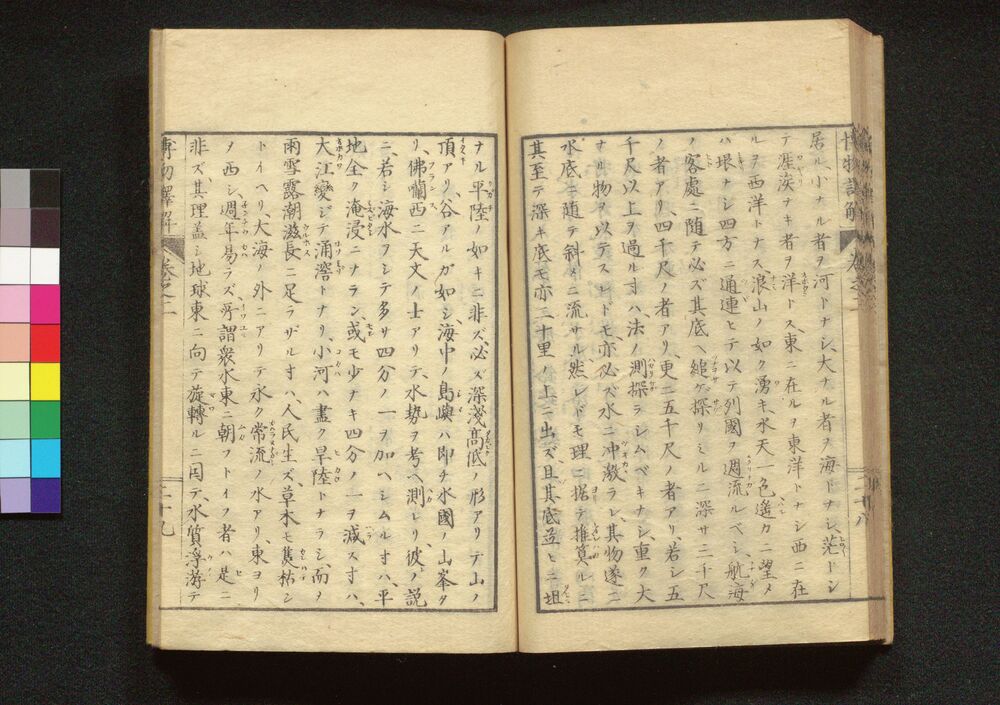 博物譯解 卷之二 二十八
居ル、小ナル者ヲ河トナシ、大ナル者ヲ海トナシ、茫トシ
テ涯涘ナキ者ヲ洋トス、東ニ在ルヲ東洋トナシ西ニ在
ルヲ西洋トナス、浪山ノ如ク湧キ、水天一色遙カニ望メ
ハ垠ナシ四方ニ通連ヒテ以テ列國ヲ週流ルベシ、航海
ノ客處ニ隨テ必ズ其底ヘ縋ゲ探リミルニ深サ三千尺
ノ者アリ、四千尺ノ者アリ、更ニ五千尺ノ者アリ若シ五
千尺以上ヲ過ル寸ハ法ノ測探ラシムベキナシ、重ク大
ナル物ヲ以テスレドモ、亦必ズ水ニ冲激ラレ、其物遂ニ
水底ニ随テ斜メニ流サル然レドモ理ニ据テ推算ルニ
其至テ深キ底モ亦三十里ノ上ニ出ズ且其底盡ヒニ坦
ナル平陸ノ如キニ非ズ、必ズ深淺高低ノ形アリテ山ノ
頂アリ、谷アルガ如シ、海中ノ島嶼ハ即チ水國ノ山峯ク
リ、佛囒西ニ天文ノ士アリテ、水勢ヲ考ヘ測レリ、彼ノ説
ニ、若シ海水フシテ多サ四分ノ一ヲ加ヘシムル寸ハ、平
地全ク淹浸ニナラン、或モ少ナキ四分ノ一ヲ減ス寸ハ、
大江變ジテ涌澪トナリ、小河ハ盡ク旱陸トナラシ、而メ
雨雪露潮滋長ニ足ラザル寸ハ、人民生ズ草木モ焦枯シ
トイヘリ、大海ノ外ニアリテ水ク常流ノ水アリ、東ヨリ
ノ西シ、週年易ラズ、所謂衆水東ニ朝フトイフ者ハ是ニ
非ズ其理蓋シ地球東ニ向テ旋轉ルニ因テ、水質浮游テ
博物譯解 卷之二 二十九